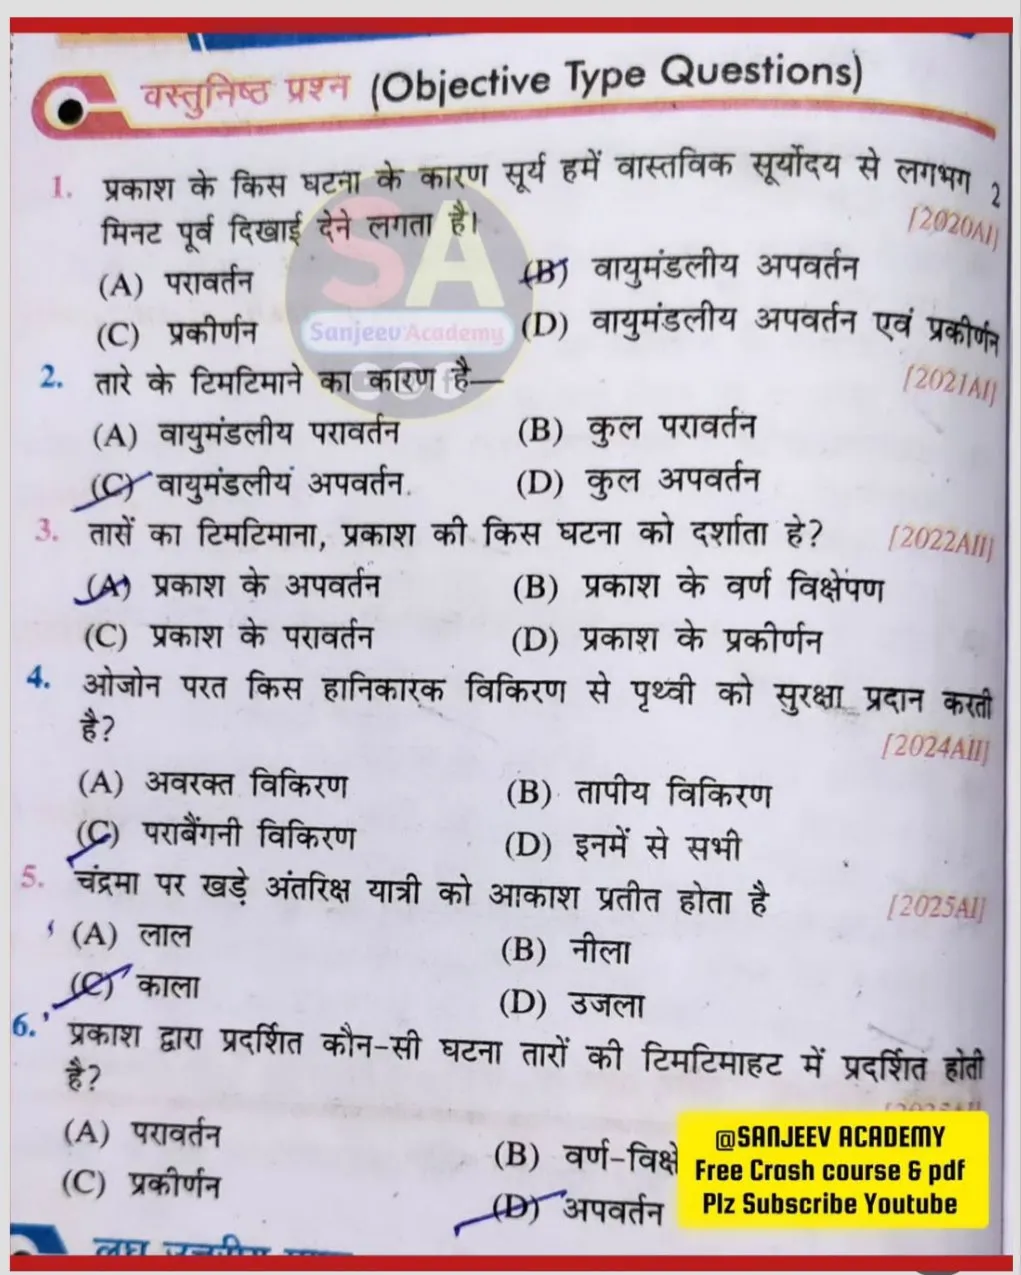 वस्तुनिष्ठ प्रश्न (Objective Type Questions)
1. प्रकाश के किस घटना के कारण सूर्य हमें वास्तविक सूर्योदय से लगभग 2
मिनट पूर्व दिखाई देने लगता है। [2020AI]
(A) परावर्तन (B) वायुमंडलीय अपवर्तन
(C) प्रकीर्णन (D) वायुमंडलीय अपवर्तन एवं प्रकीर्णन
SA
Sanjeev Academy
2. तारे के टिमटिमाने का कारण है— [2021AI]
(A) वायुमंडलीय परावर्तन (B) कुल परावर्तन
(C) वायुमंडलीय अपवर्तन. (D) कुल अपवर्तन
3. तासें का टिमटिमाना, प्रकाश की किस घटना को दर्शाता हे? [2022AII]
(A) प्रकाश के अपवर्तन (B) प्रकाश के वर्ण विक्षेपण
(C) प्रकाश के परावर्तन (D) प्रकाश के प्रकीर्णन
4. ओजोन परत किस हानिकारक विकिरण से पृथ्वी को सुरक्षा प्रदान करती
है? [2024AII]
(A) अवरक्त विकिरण (B) तापीय विकिरण
(C) पराबैंगनी विकिरण (D) इनमें से सभी
5. चंद्रमा पर खड़े अंतरिक्ष यात्री को आकाश प्रतीत होता है [2025AI]
(A) लाल (B) नीला
(C) काला (D) उजला
6. प्रकाश द्वारा प्रदर्शित कौन-सी घटना तारों की टिमटिमाहट में प्रदर्शित होती
है?
(A) परावर्तन (B) वर्ण-विक्षे
(C) प्रकीर्णन (D) अपवर्तन
@SANJEEV ACADEMY
Free Crash course & pdf
Plz Subscribe Youtube